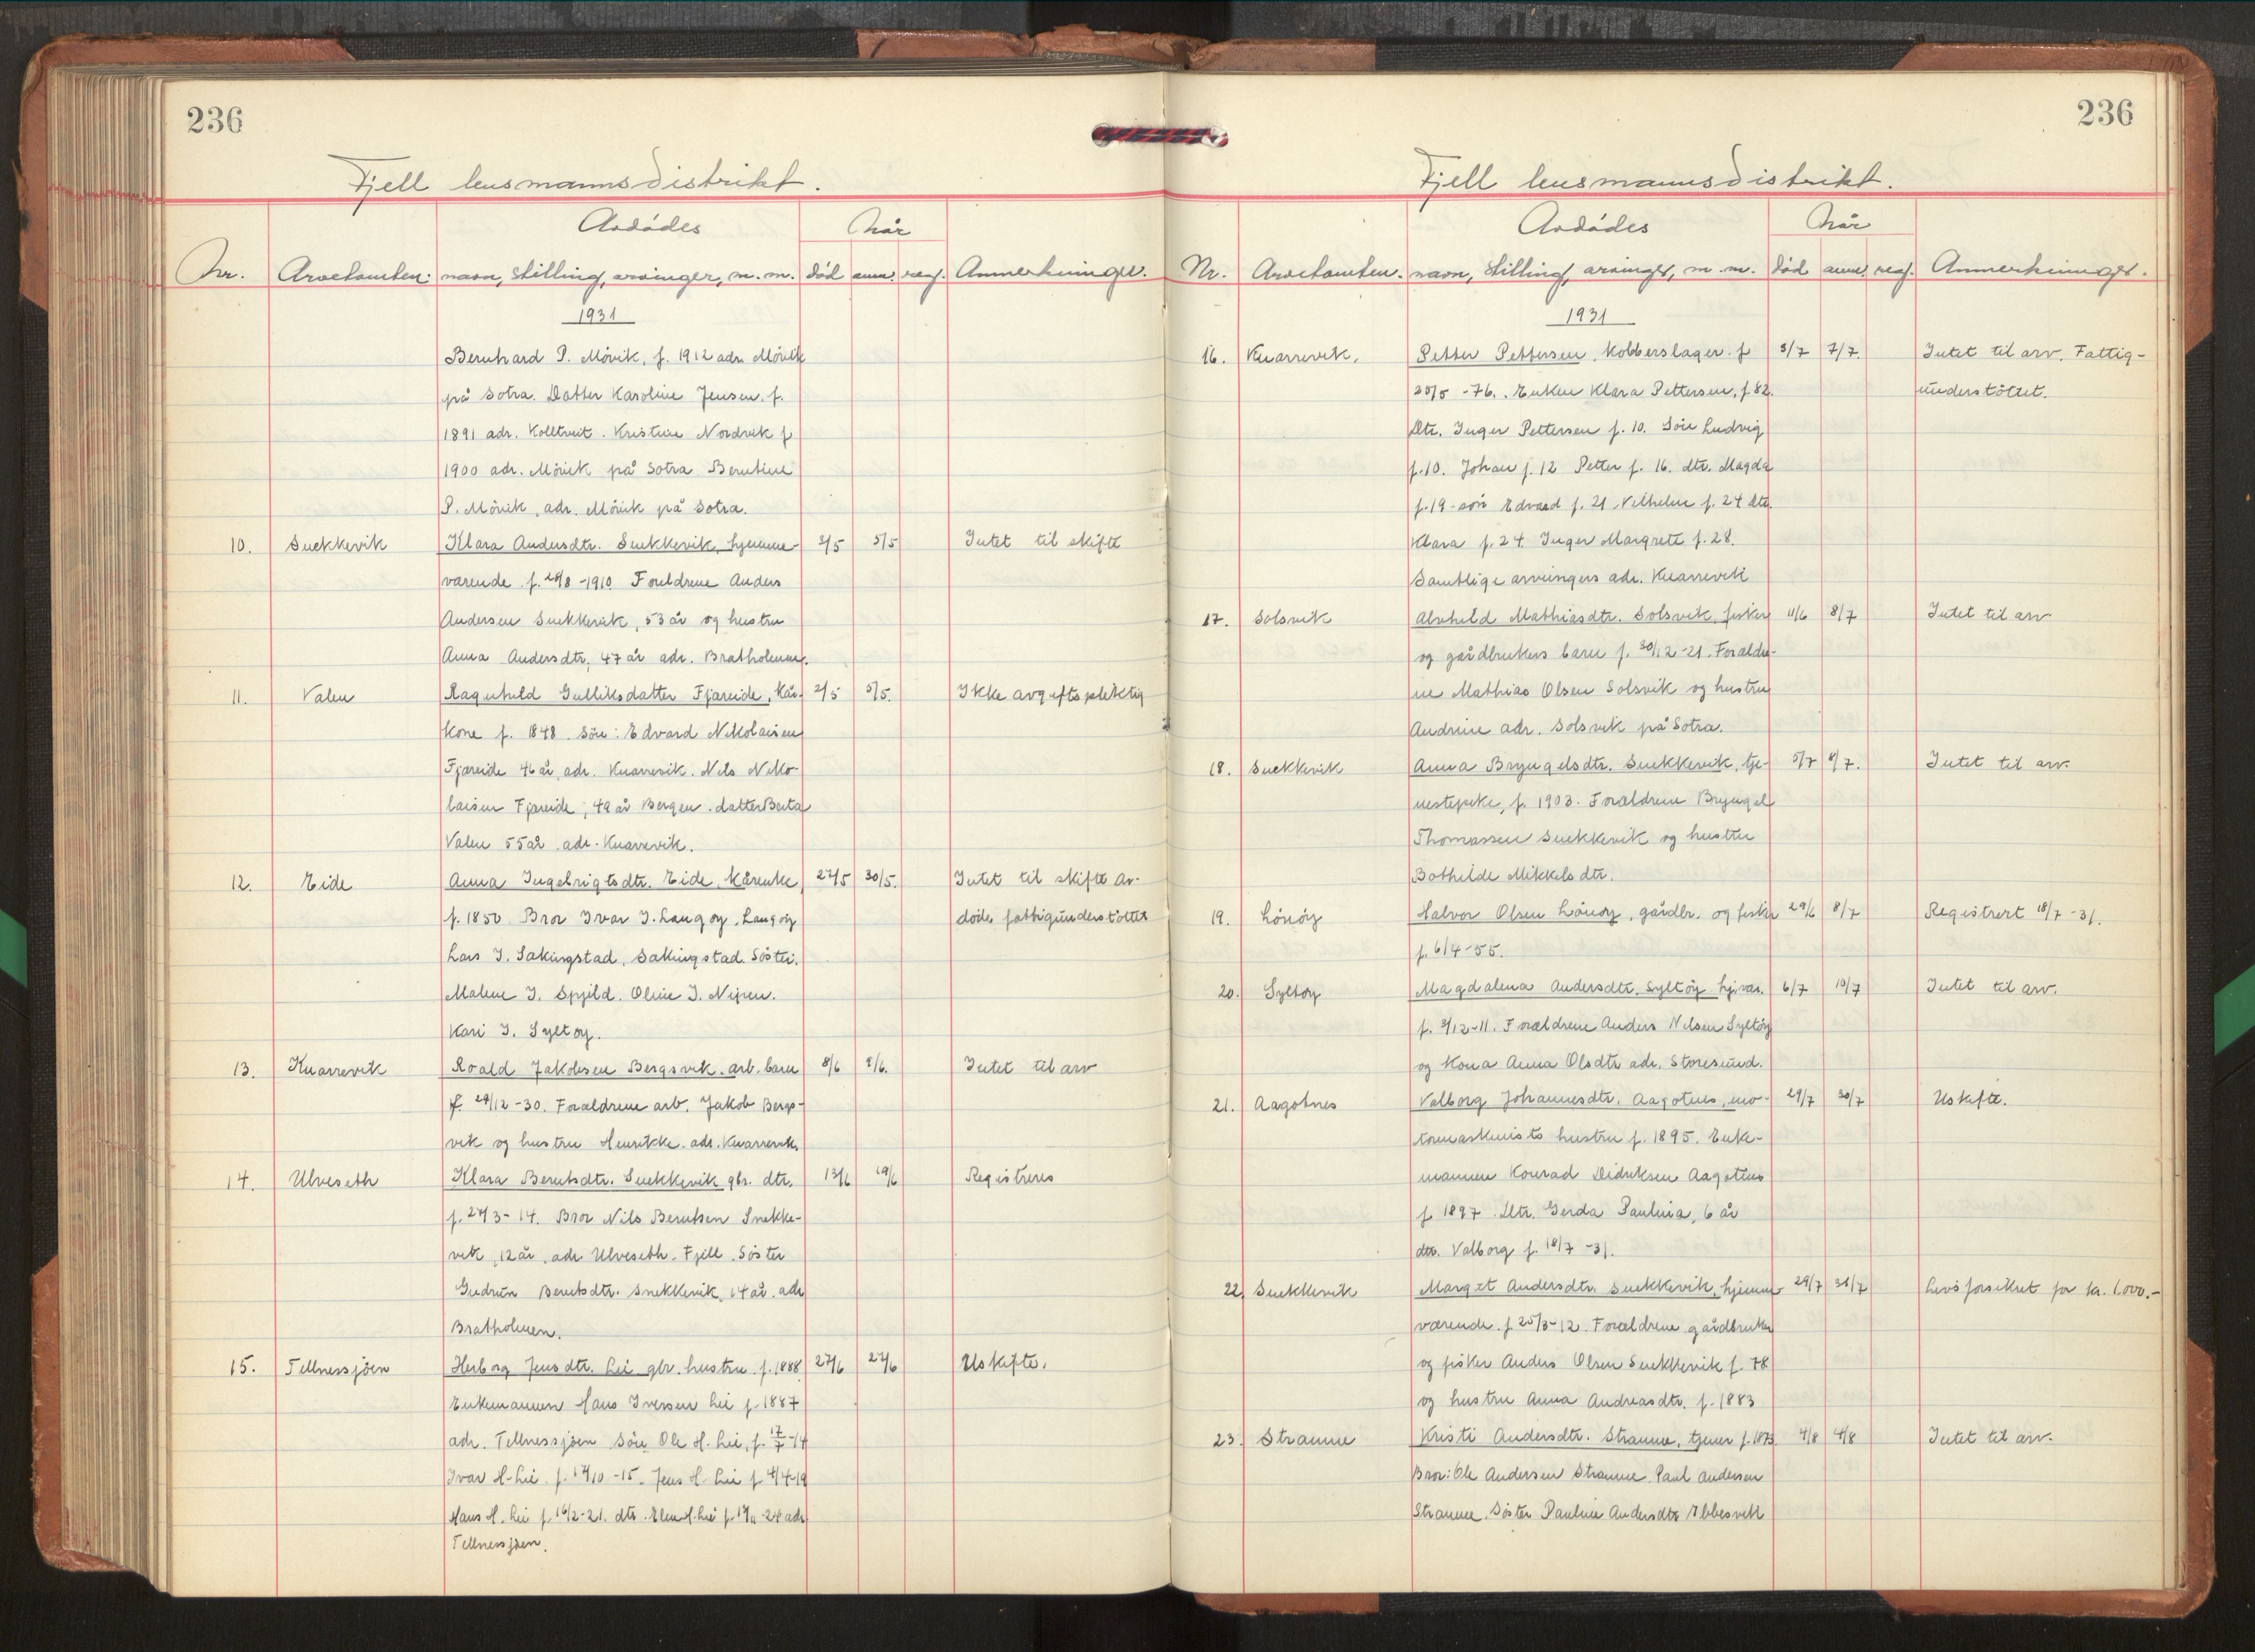 236
Fjell lensmannsdistrikt.
Avdødes
Når
Nr. Arvetomten: navn, stilling, arvinger, m. m. død anm. reg. Anmerkninger.
1931
Bernhard P. Mövik, f. 1912 adr. Mövik
på Sotra. Datter Karoline Jensen. f.
1891 adr. Kolltveit. Kristine Nordvik f
1900 adr. Mövik på Sotra. Berntine
P. Mövik, adr. Mövik på Sotra.
10. Snekkevik Klara Andersdtr. Snekkevik, hjemme- 2/5 5/5 Intet til skifte
værende f. 28/8 -1910 Foreldrene Anders
Andersen Snekkevik, 53 år og hustru
Anna Andersdtr, 47 år adr. Bratholmen.
11. Valen Ragnhild Gulliksdatter Fjæreide, kår- 2/5 5/5. Ikke avgiftspliktig
kone f. 1848. Sön: Edvard Nikolaisen
Fjæreide 46 år, adr. Knarrevik. Nils Niko-
laisen Fjæreide, 49 år Bergen. datter Berta
Valen 55 år adr. Knarrevik.
12. Eide Anna Ingebrigtsdtr. Eide, kårenke 27/5 30/5. Intet til skifte Av-
f. 1850 Bror Ivar I. Langöy, Langöy döde, fattigunderstöttet
Lars I. Sakingstad, Sakingstad. Söster.
Malene I. Spjeld. Oline I. Nipen.
Kari I. Syltöy.
13. Knarrevik Roald Jakobsen Bergsvik. arb. barn 8/6 8/6. Intet til arv
f. 29/12 -30. Foreldrene arb. Jakob Bergs-
vik og hustru Henrikke. adr. Knarrevik.
14. Ulveseth Klara Berntsdtr. Snekkevik gbr. dtr. 13/6 19/6 Registreres
f. 27/3 - 14. Bror Nils Berntsen Snekke-
vik, 12 år, adr. Ulveseth. Fjell. Söster
Gudrun Berntsdtr. Snekkevik, 14 år. adr
Bratholmen.
15. Tellnessjöen Herborg Jensdtr. Lie gbr. hustru f. 1888 27/6 27/6 Uskifte.
Enkemannen Hans Iversen Lie f. 1887
adr. Tellnessjöen Sön Ole H. Lie, f. 17/7 -14
Ivar H. Lie. f. 14/10 -15. Jens H. Lie f 4/4-19
Hans H. Lie f. 16/2-21. dtr. H. Lie f. -24 adr
Tellnessjöen.
236
Fjell lensmannsdistrikt.
Avdødes
Når
Nr. Arvetomten. navn, stilling, arvinger, m. m. død anm. reg. Anmerkninger.
1931
16. Knarrevik. Petter Pettersen, Kobberslager. f 3/7 7/7. Intet til arv. Fattig-
20/5 -76. Enken Klara Pettersen, f 82. understöttet.
Dtr. Inger Pettersen f. 10. Sön Ludvig
f. 10. Johan f. 12 Petter f. 16. dtr. Magda
f. 19 - sön Edvard f. 21. Vilhelm f. 24 dtr.
Klara f. 24. Inger Margrete f. 28.
Samtlige arvingers adr. Knarrevik
17. Solsvik Alvhild Mathiasdtr. Solsvik, fisker 11/6 8/7 Intet til arv
og gårdbrukers barn f. 30/12 -21. Foreldre-
ne Mathias Olsen Solsvik og hustru
Andrine adr. Solsvik på Sotra.
18. Snekkevik Anna Bryngelsdtr. Snekkevik, tje- 5/7 8/7. Intet til arv.
nestepike, f. 1903. Foreldrene Bryngel
Thomassen Snekkevik og hustru
Bothilde Mikkelsdtr.
19. Lönöy Halvor Olsen Lönöy, gårdbr. og fisker 29/6 8/7 Registrert 18/7 -31.
f. 6/4 -55.
20. Syltöy Magdalena Andersdtr. Syltöy hj.vær. 6/7 10/7 Intet til arv.
f. 3/12 -11. Foreldrene Anders Nilsen Syltöy
og kona Anna Olsdtr adr. Storesund.
21. Aagotnes Valborg Johannesdtr. Aagotnes, mo- 29/7 30/7 Uskifte.
tormaskinists hustru f. 1895. Enke-
mannen Konrad Didriksen Aagotnes
f 1897. Dtr. Gerda Paulina, 6 år
dtr. Valborg f. 18/7 -31.
22. Snekkevik Marget Andersdtr. Snekkevik, hjemme- 29/7 31/7 Livsforsikret for kr. 1.000.-
værende. f 25/3-12. Foreldrene gårdbruker
og fisker Anders Olsen Snekkevik f. 78
og hustru Anna Andreasdtr. f. 1883
23. Straume Kristi Andersdtr. Straume, tjener f. 1873. 4/8 4/8 Intet til arv.
Bror: Ole Andersen Straume. Paul Andersen
Straume. Söster Pauline Andersdtr Ebbesvik